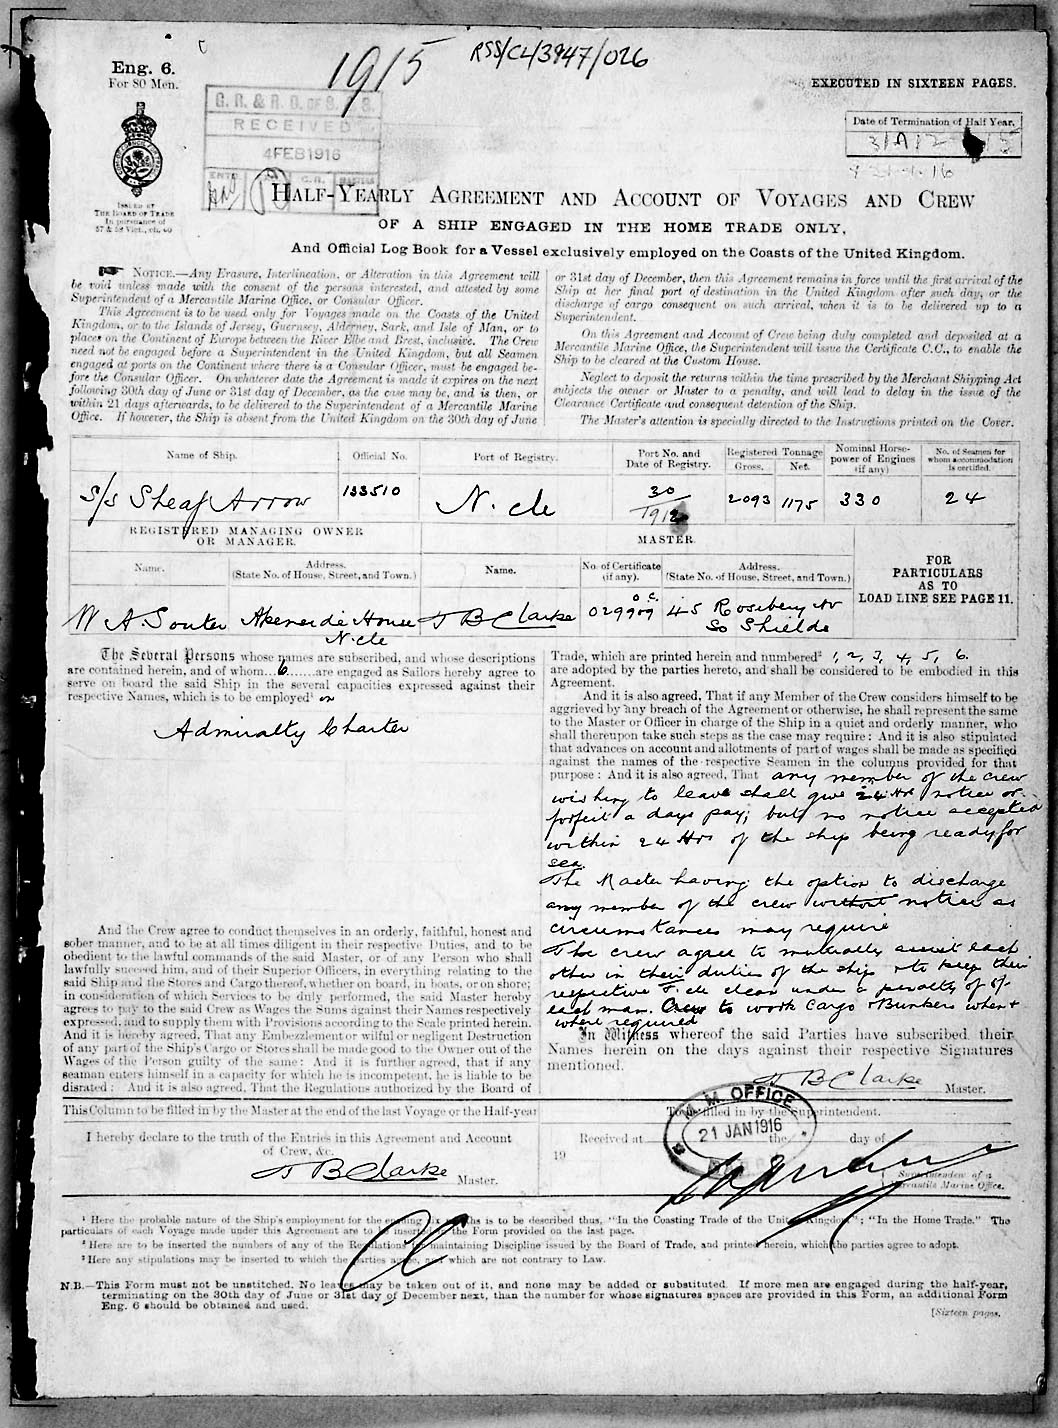 1915
RSS/CL/3947/026
Eng. 6.
For 80 Men.
EXECUTED IN SIXTEEN PAGES.
G.R. & R.D. OF S. & S.
RECEIVED
4 FEB 1916
Date of Termination of Half Year.
ISSUED BY
THE BOARD OF TRADE
In pursuance of
57 & 58 Vict., ch. 60
HALF-YEARLY AGREEMENT AND ACCOUNT OF VOYAGES AND CREW
OF A SHIP ENGAGED IN THE HOME TRADE ONLY,
And Official Log Book for a Vessel exclusively employed on the Coasts of the United Kingdom.
NOTICE.—Any Erasure, Interlineation, or Alteration in this Agreement will
be void unless made with the consent of the persons interested, and attested by some
Superintendent of a Mercantile Marine Office, or Consular Officer.
This Agreement is to be used only for Voyages made on the Coasts of the United
Kingdom, or to the Islands of Jersey, Guernsey, Alderney, Sark, and Isle of Man, or to
places on the Continent of Europe between the River Elbe and Brest, inclusive. The Crew
need not be engaged before a Superintendent in the United Kingdom, but all Seamen
engaged at ports on the Continent where there is a Consular Officer, must be engaged be-
fore the Consular Officer. On whatever date the Agreement is made it expires on the next
following 30th day of June or 31st day of December, as the case may be, and is then, or
within 21 days afterwards, to be delivered to the Superintendent of a Mercantile Marine
Office. If however, the Ship is absent from the United Kingdom on the 30th day of June
or 31st day of December, then this Agreement remains in force until the first arrival of the
Ship at her final port of destination in the United Kingdom after such day, or the
discharge of cargo consequent on such arrival, when it is to be delivered up to a
Superintendent.
On this Agreement and Account of Crew being duly completed and deposited at a
Mercantile Marine Office, the Superintendent will issue the Certificate C.C., to enable the
Ship to be cleared at the Custom House.
Neglect to deposit the returns within the time prescribed by the Merchant Shipping Act
subjects the owner or Master to a penalty, and will lead to delay in the issue of the
Clearance Certificate and consequent detention of the Ship.
The Master's attention is specially directed to the Instructions printed on the Cover.
Name of Ship. Official No. Port of Registry. Port No. and Date of Registry. Registered Tonnage Gross. Net. Nominal Horse-power of Engines (if any) No. of Seamen for whom accommodation is certified.
S/S Sheaf Arrow 133510 N. cle 30/1912 2093 1175 330 24
REGISTERED MANAGING OWNER
OR MANAGER.
MASTER.
Name. Address. (State No. of House, Street, and Town.) Name. No. of Certificate (if any). Address. (State No. of House, Street, and Town.)
FOR
PARTICULARS
AS TO
LOAD LINE SEE PAGE 11.
W A. Souter House N. cle J B Clarke 029909 45 Rosebery Av
So Shields
The Several Persons whose names are subscribed, and whose descriptions
are contained herein, and of whom...6......are engaged as Sailors hereby agree to
serve on board the said Ship in the several capacities expressed against their
respective Names, which is to be employed¹ on
Admiralty Charter
And the Crew agree to conduct themselves in an orderly, faithful, honest and
sober manner, and to be at all times diligent in their respective Duties, and to be
obedient to the lawful commands of the said Master, or of any Person who shall
lawfully succeed him, and of their Superior Officers, in everything relating to the
said Ship and the Stores and Cargo thereof, whether on board, in boats, or on shore;
in consideration of which Services to be duly performed, the said Master hereby
agrees to pay to the said Crew as Wages the Sums against their Names respectively
expressed, and to supply them with Provisions according to the Scale printed herein.
And it is hereby agreed, That any Embezzlement or wilful or negligent Destruction
of any part of the Ship's Cargo or Stores shall be made good to the Owner out of the
Wages of the Person guilty of the same: And it is further agreed, that if any
seaman enters himself in a capacity for which he is incompetent, he is liable to be
disrated: And it is also agreed, That the Regulations authorized by the Board of
Trade, which are printed herein and numbered² 1, 2, 3, 4, 5, 6.
are adopted by the parties hereto, and shall be considered to be embodied in this
Agreement.
And it is also agreed, That if any Member of the Crew considers himself to be
aggrieved by any breach of the Agreement or otherwise, he shall represent the same
to the Master or Officer in charge of the Ship in a quiet and orderly manner, who
shall thereupon take such steps as the case may require: And it is also stipulated
that advances on account and allotments of part of wages shall be made as specified
against the names of the respective Seamen in the columns provided for that
purpose: And it is also agreed, That any member of the crew
wishing to leave shall give 24 Hrs notice or
forfeit a days pay; but no notice accepted
within 24 Hrs of the ship being ready for
sea.
The Master having the option to discharge
any member of the crew without notice as
circumstances may require
The crew agree to mutually assist each
other in their duties of the ship & to keep their
respective F. cle clean under a penalty of 5/-
each man. Crew to work cargo & Bunkers when &
where required
In Witness whereof the said Parties have subscribed their
Names herein on the days against their respective Signatures
mentioned.
J B Clarke Master.
This Column to be filled in by the Master at the end of the last Voyage or the Half-year
I hereby declare to the truth of the Entries in this Agreement and Account
of Crew, &c.
J B Clarke Master.
To be filled in by the Superintendent.
M. M. OFFICE
21 JAN 1916
Received at the day of
19
Superintendent of a
Mercantile Marine Office.
¹ Here the probable nature of the Ship's employment for the ensuing six months is to be described thus, "In the Coasting Trade of the United Kingdom"; "In the Home Trade." The
particulars of each Voyage made under this Agreement are to be inserted in the Form provided on the last page.
² Here are to be inserted the numbers of any of the Regulations for maintaining Discipline issued by the Board of Trade, and printed herein, which the parties agree to adopt.
³ Here any stipulations may be inserted to which the parties agree, and which are not contrary to Law.
N.B.—This Form must not be unstitched. No leaves may be taken out of it, and none may be added or substituted. If more men are engaged during the half-year,
terminating on the 30th day of June or 31st day of December next, than the number for whose signatures spaces are provided in this Form, an additional Form
Eng. 6 should be obtained and used.
[Sixteen pages.